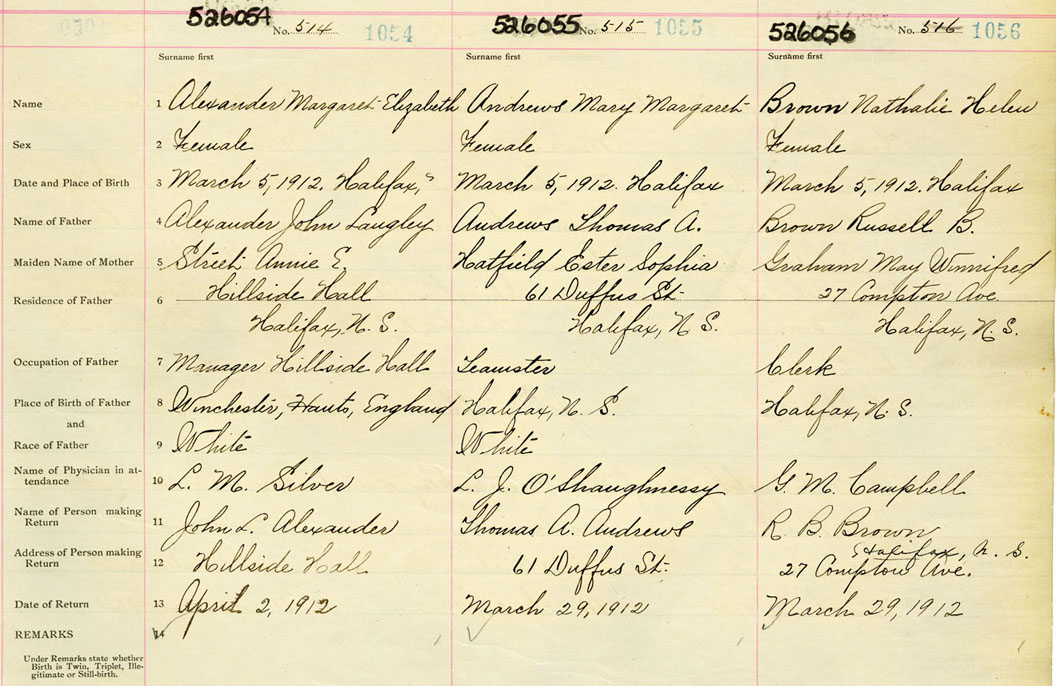 526054 No. 514 1054 526055 No. 515 1055 526056 No. 516 1056
Surname first Surname first Surname first
Name 1 Alexander Margaret Elizabeth Andrews Mary Margaret Brown Nathalie Helen
Sex 2 Female Female Female
Date and Place of Birth 3 March 5, 1912. Halifax," March 5, 1912. Halifax March 5, 1912. Halifax
Name of Father 4 Alexander John Langley Andrews Thomas A. Brown Russell B.
Maiden Name of Mother 5 Street Annie E. Hatfield Ester Sophia Graham May Winnifred
Residence of Father 6 Hillside Hall 61 Duffus St. 27 Compton Ave.
Halifax, N. S. Halifax, N S. Halifax, N. S.
Occupation of Father 7 Manager Hillside Hall Teamster Clerk
Place of Birth of Father 8 Winchester, Hants, England Halifax, N. S. Halifax, N. S.
and
Race of Father 9 White White
Name of Physician in at-
tendance 10 L. M. Silver L. J. O'Shaughnessy G. M. Campbell
Name of Person making
Return 11 John L. Alexander Thomas A. Andrews R. B. Brown
Address of Person making Halifax, N. S.
Return 12 Hillside Hall 61 Duffus St. 27 Compton Ave.
Date of Return 13 April 2, 1912 March 29, 1912 March 29, 1912
REMARKS 14
Under Remarks state whether
Birth is Twin, Triplet, Ille-
gitimate or Still-birth.